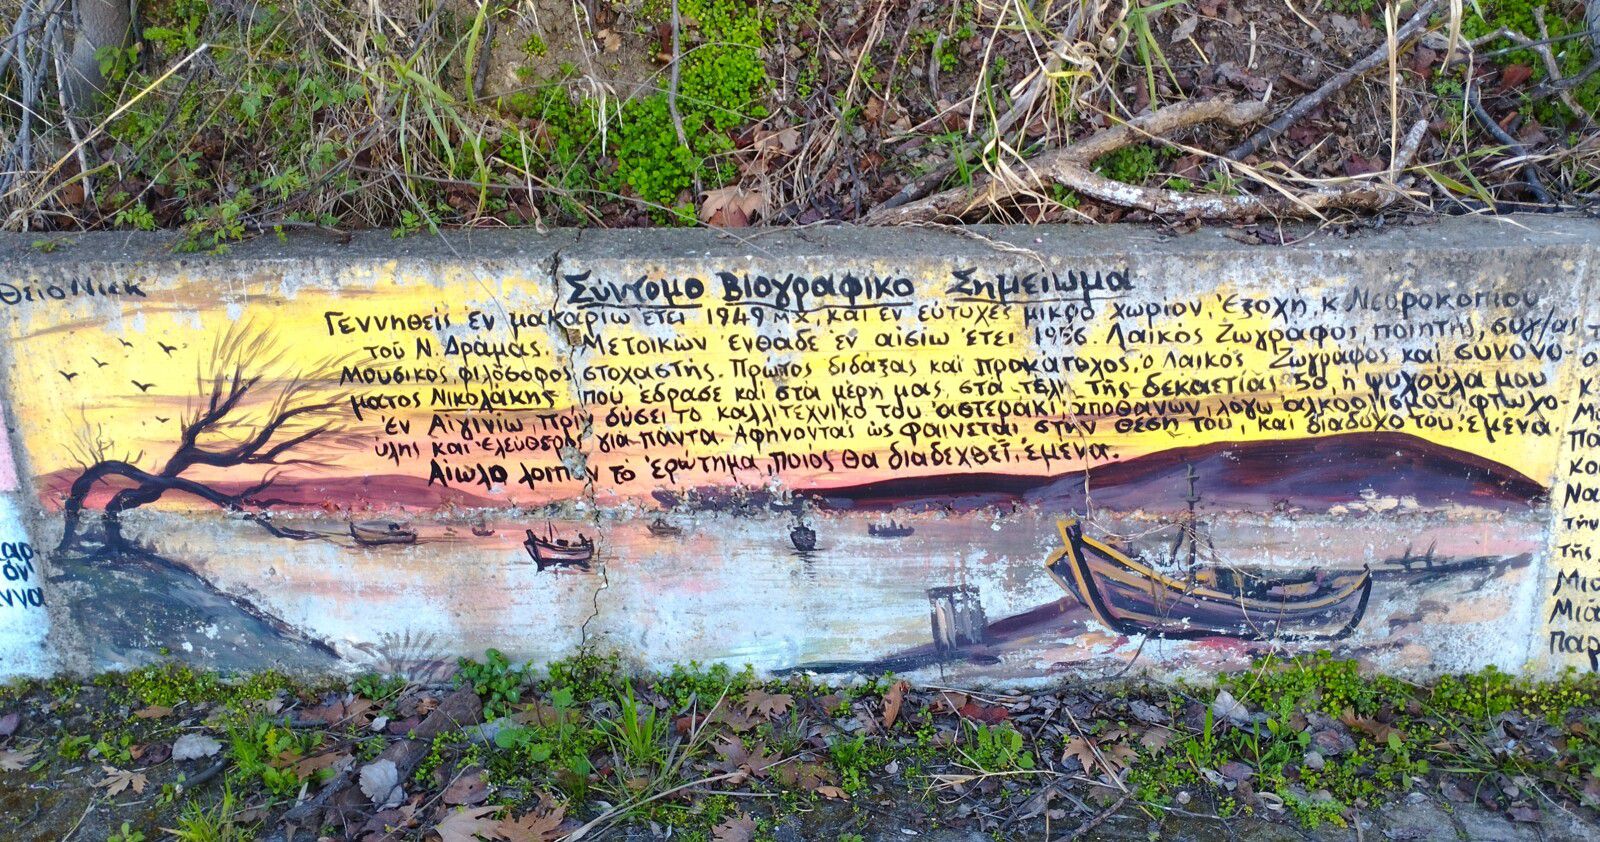 Θείο Νιεκ
Σύντομο Βιογραφικό Σημείωμα
Γεννηθείς ἐν μακαρίω ἔτει 1949 μ.χ, και ἐν εὐτυχές μικρό χωρίον, Ἐξοχή, κ. Νευροκοπίου
τοῦ Ν. Δράμας. Μετοικών ἐνθάδε ἐν αἰσίω ἔτει 1956. Λαϊκός Ζωγράφος, ποιητής, συγ/ας
Μουσικός, φιλόσοφος, στοχαστής. Πρῶτος διδάξας καί προκάτοχος, ὁ Λαϊκός Ζωγράφος καί συνονο-
ματος Νικολάκης πού ἔδρασε καί στά μέρη μας, στά τέλη τῆς δεκαετίας 50, ἡ ψυχούλα μου
ἐν Αἰγινίω, πρίν δύσει το καλλιτεχνικό του ἀστεράκι, ἀποθανών, λόγω ἀλκοολισμοῦ, φτωχο-
ύλης και ἐλεύθερος γιά πάντα. Ἀφήνοντας ὡς φαίνεται στήν θέση του, και διάδοχο του, ἐμένα.
Αἰωλο λοιπόν τό ἐρώτημα, ποιός θά διαδεχθεῖ, ἐμένα.
ον
ννα
τ
ο
κ
Μ
Πά
κο
Να
τήν
τῆς
Μι
Μιά
παρ